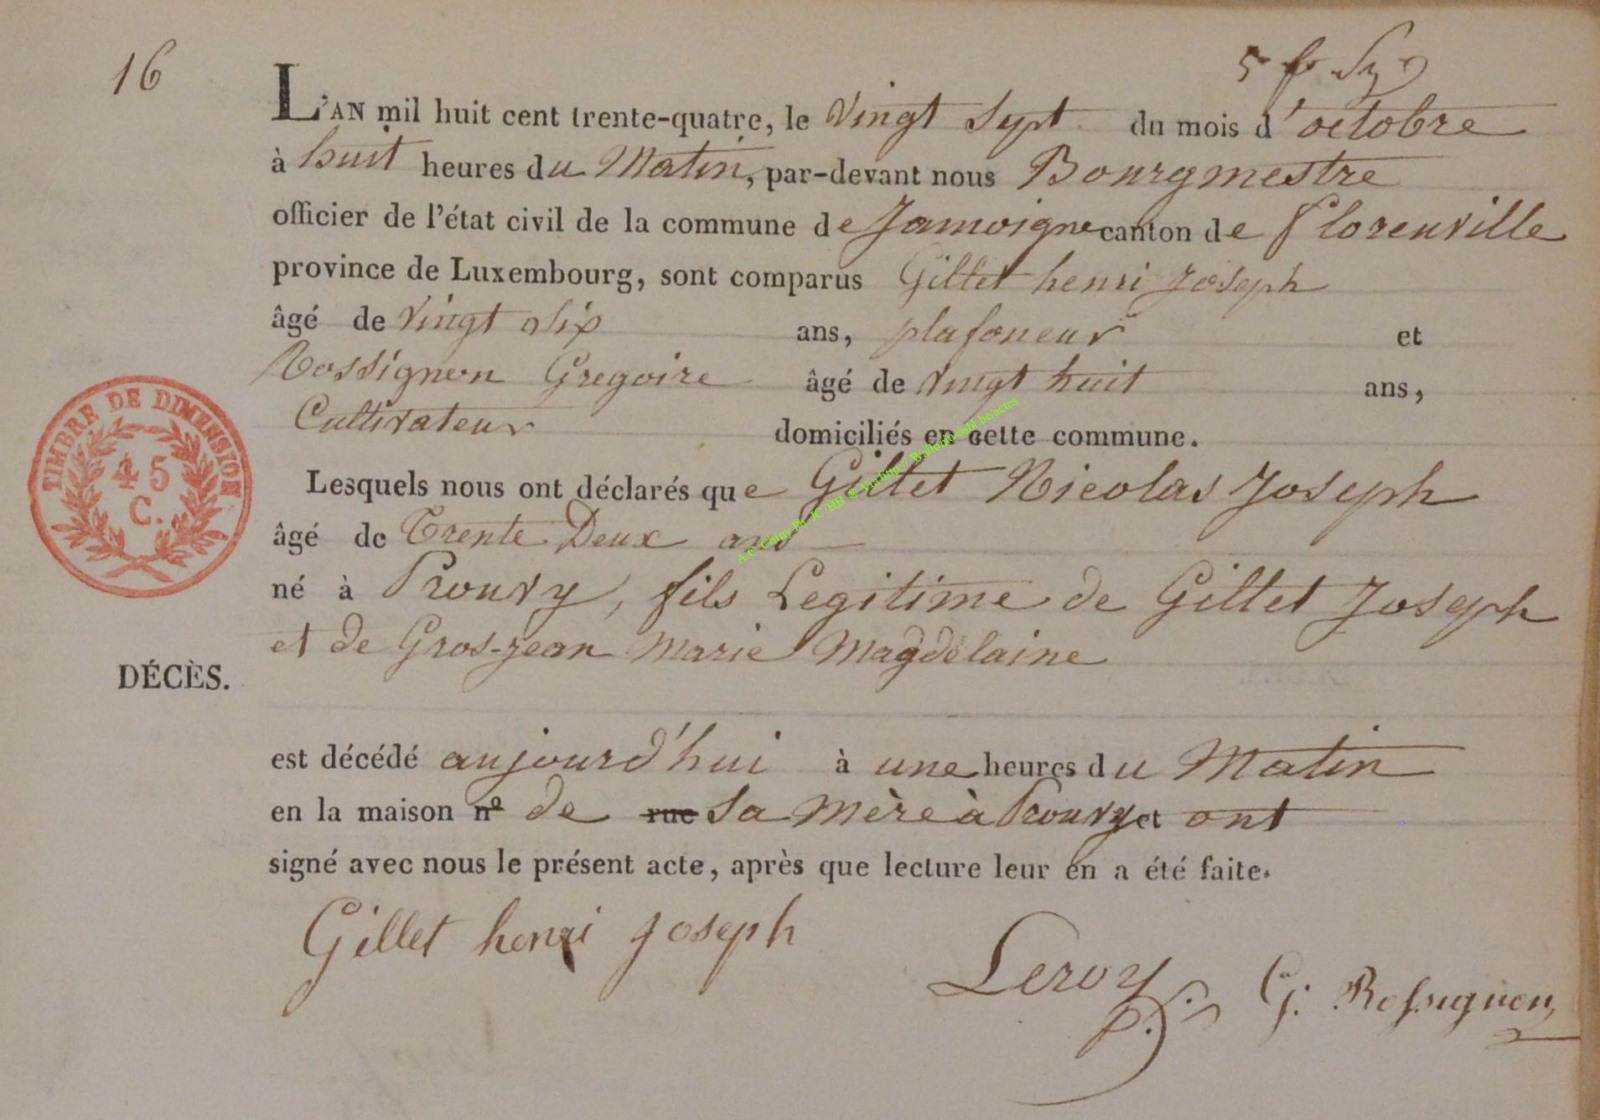 16
L'AN mil huit cent trente-quatre, le Vingt Sept du mois d'octobre
à huit heures du Matin, par-devant nous Bourgmestre
officier de l'état civil de la commune de Jamoigne canton de Florenville
province de Luxembourg, sont comparus Gillet henri Joseph
âgé de Vingt Six ans, plafoneur et
Rossignon Gregoire âgé de vingt huit ans,
Cultivateur domiciliés en cette commune.
Lesquels nous ont déclarés que Gillet Nicolas Joseph
âgé de Trente Deux ans
né à Prouvy, fils Legitime de Gillet Joseph
et de Gros-jean Marie Magdelaine
DÉCÈS.
est décédé aujourd'hui à une heures du Matin
en la maison nº de rue Sa Mère à Prouvy et ont
signé avec nous le présent acte, après que lecture leur en a été faite.
Gillet henri Joseph
Leroy
G. Rossignon
TIMBRE DE DIMENSION
45
C.